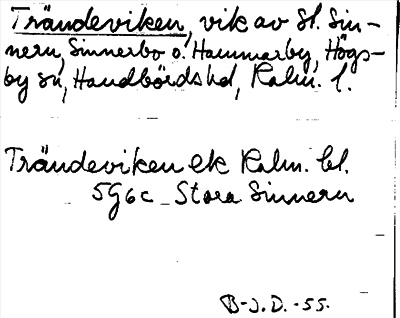 Trändeviken, vik av St. Sin-
nern, Sinnerbo o. Hammarby, Högs-
by sn, Handbörds hd, Kalm. l.
Trändeviken ek Kalm. bl.
5G6c Stora Sinnern
B-J.D.-55.